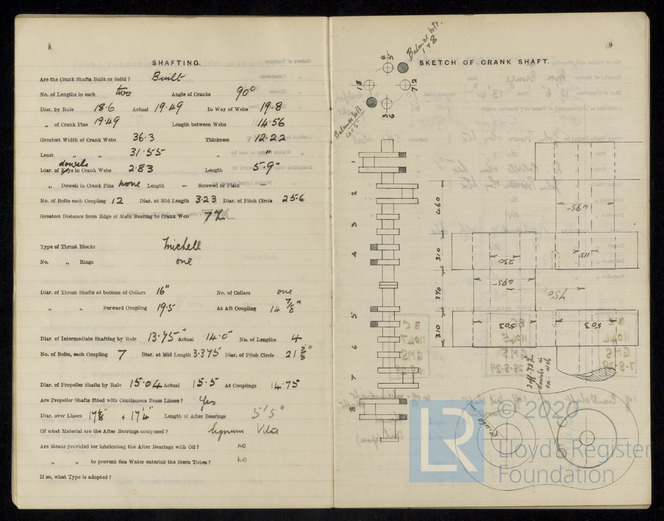 8
SHAFTING.
Are the Crank Shafts Built or Solid ? Built
No. of Lengths in each two Angle of Cranks 90°
Diar. by Rule 18.6 Actual 19.49 In Way of Webs 19.8
„ of Crank Pins 19.49 Length between Webs 14.56
Greatest Width of Crank Webs 36.3 Thickness 12.22
Least „ „ 31.55 „ "
Diar. of Keys in Crank Webs dowels 2.83 Length 5.9"
„ Dowels in Crank Pins none Length – Screwed or Plain –
No. of Bolts each Coupling 12 Diar. at Mid Length 3.23 Diar. of Pitch Circle 25.6
Greatest Distance from Edge of Main Bearing to Crank Web
Type of Thrust Blocks Michell
No. „ Rings one
Diar. of Thrust Shafts at bottom of Collars 16" No. of Collars one
„ „ Forward Coupling 19.5 At Aft Coupling 14 7/8"
Diar. of Intermediate Shafting by Rule 13.75" Actual 14.0" No. of Lengths 4
No. of Bolts, each Coupling 7 Diar. at Mid Length 3.375 Diar. of Pitch Circle
Diar. of Propeller Shafts by Rule 15.04 Actual 15.5 At Couplings 14.75
Are Propeller Shafts fitted with Continuous Brass Liners ? Yes
Diar. over Liners Length of After Bearings 5'5"
Of what Material are the After Bearings composed ? Lignum Vitae
Are Means provided for lubricating the After Bearings with Oil ? no
„ „ to prevent Sea Water entering the Stern Tubes ? no
If so, what Type is adopted ?
9
SKETCH OF CRANK SHAFT.
Balance wt.
1 & 8
1
2
3
4
5
6
7
8
460
310
370
310
495
230
115
495
750
503
503
© 2020
LR
Lloyd's Register
Foundation